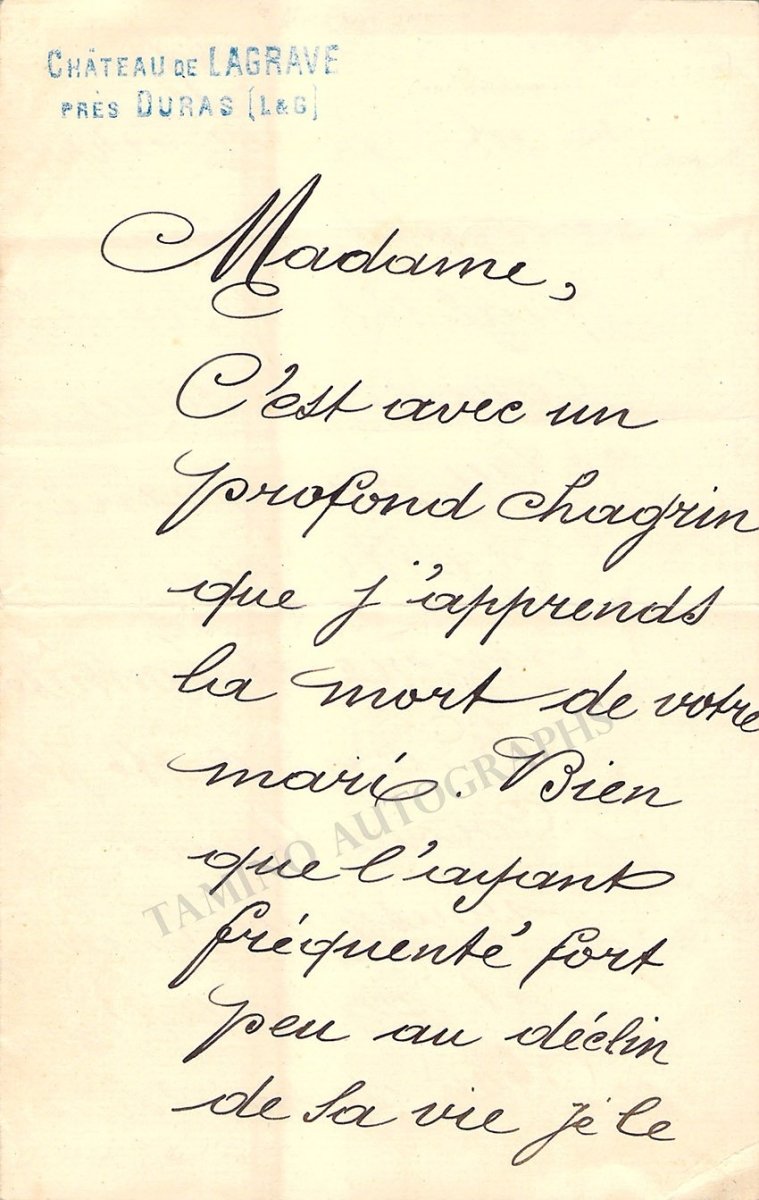 CHÂTEAU DE LAGRAVE
PRÈS DURAS (L&G)
Madame,
C'est avec un
profond chagrin
que j'apprends
la mort de votre
mari. Bien
que l'ayant
fréquenté fort
peu au déclin
de sa vie je le
TAMINO AUTOGRAPHS